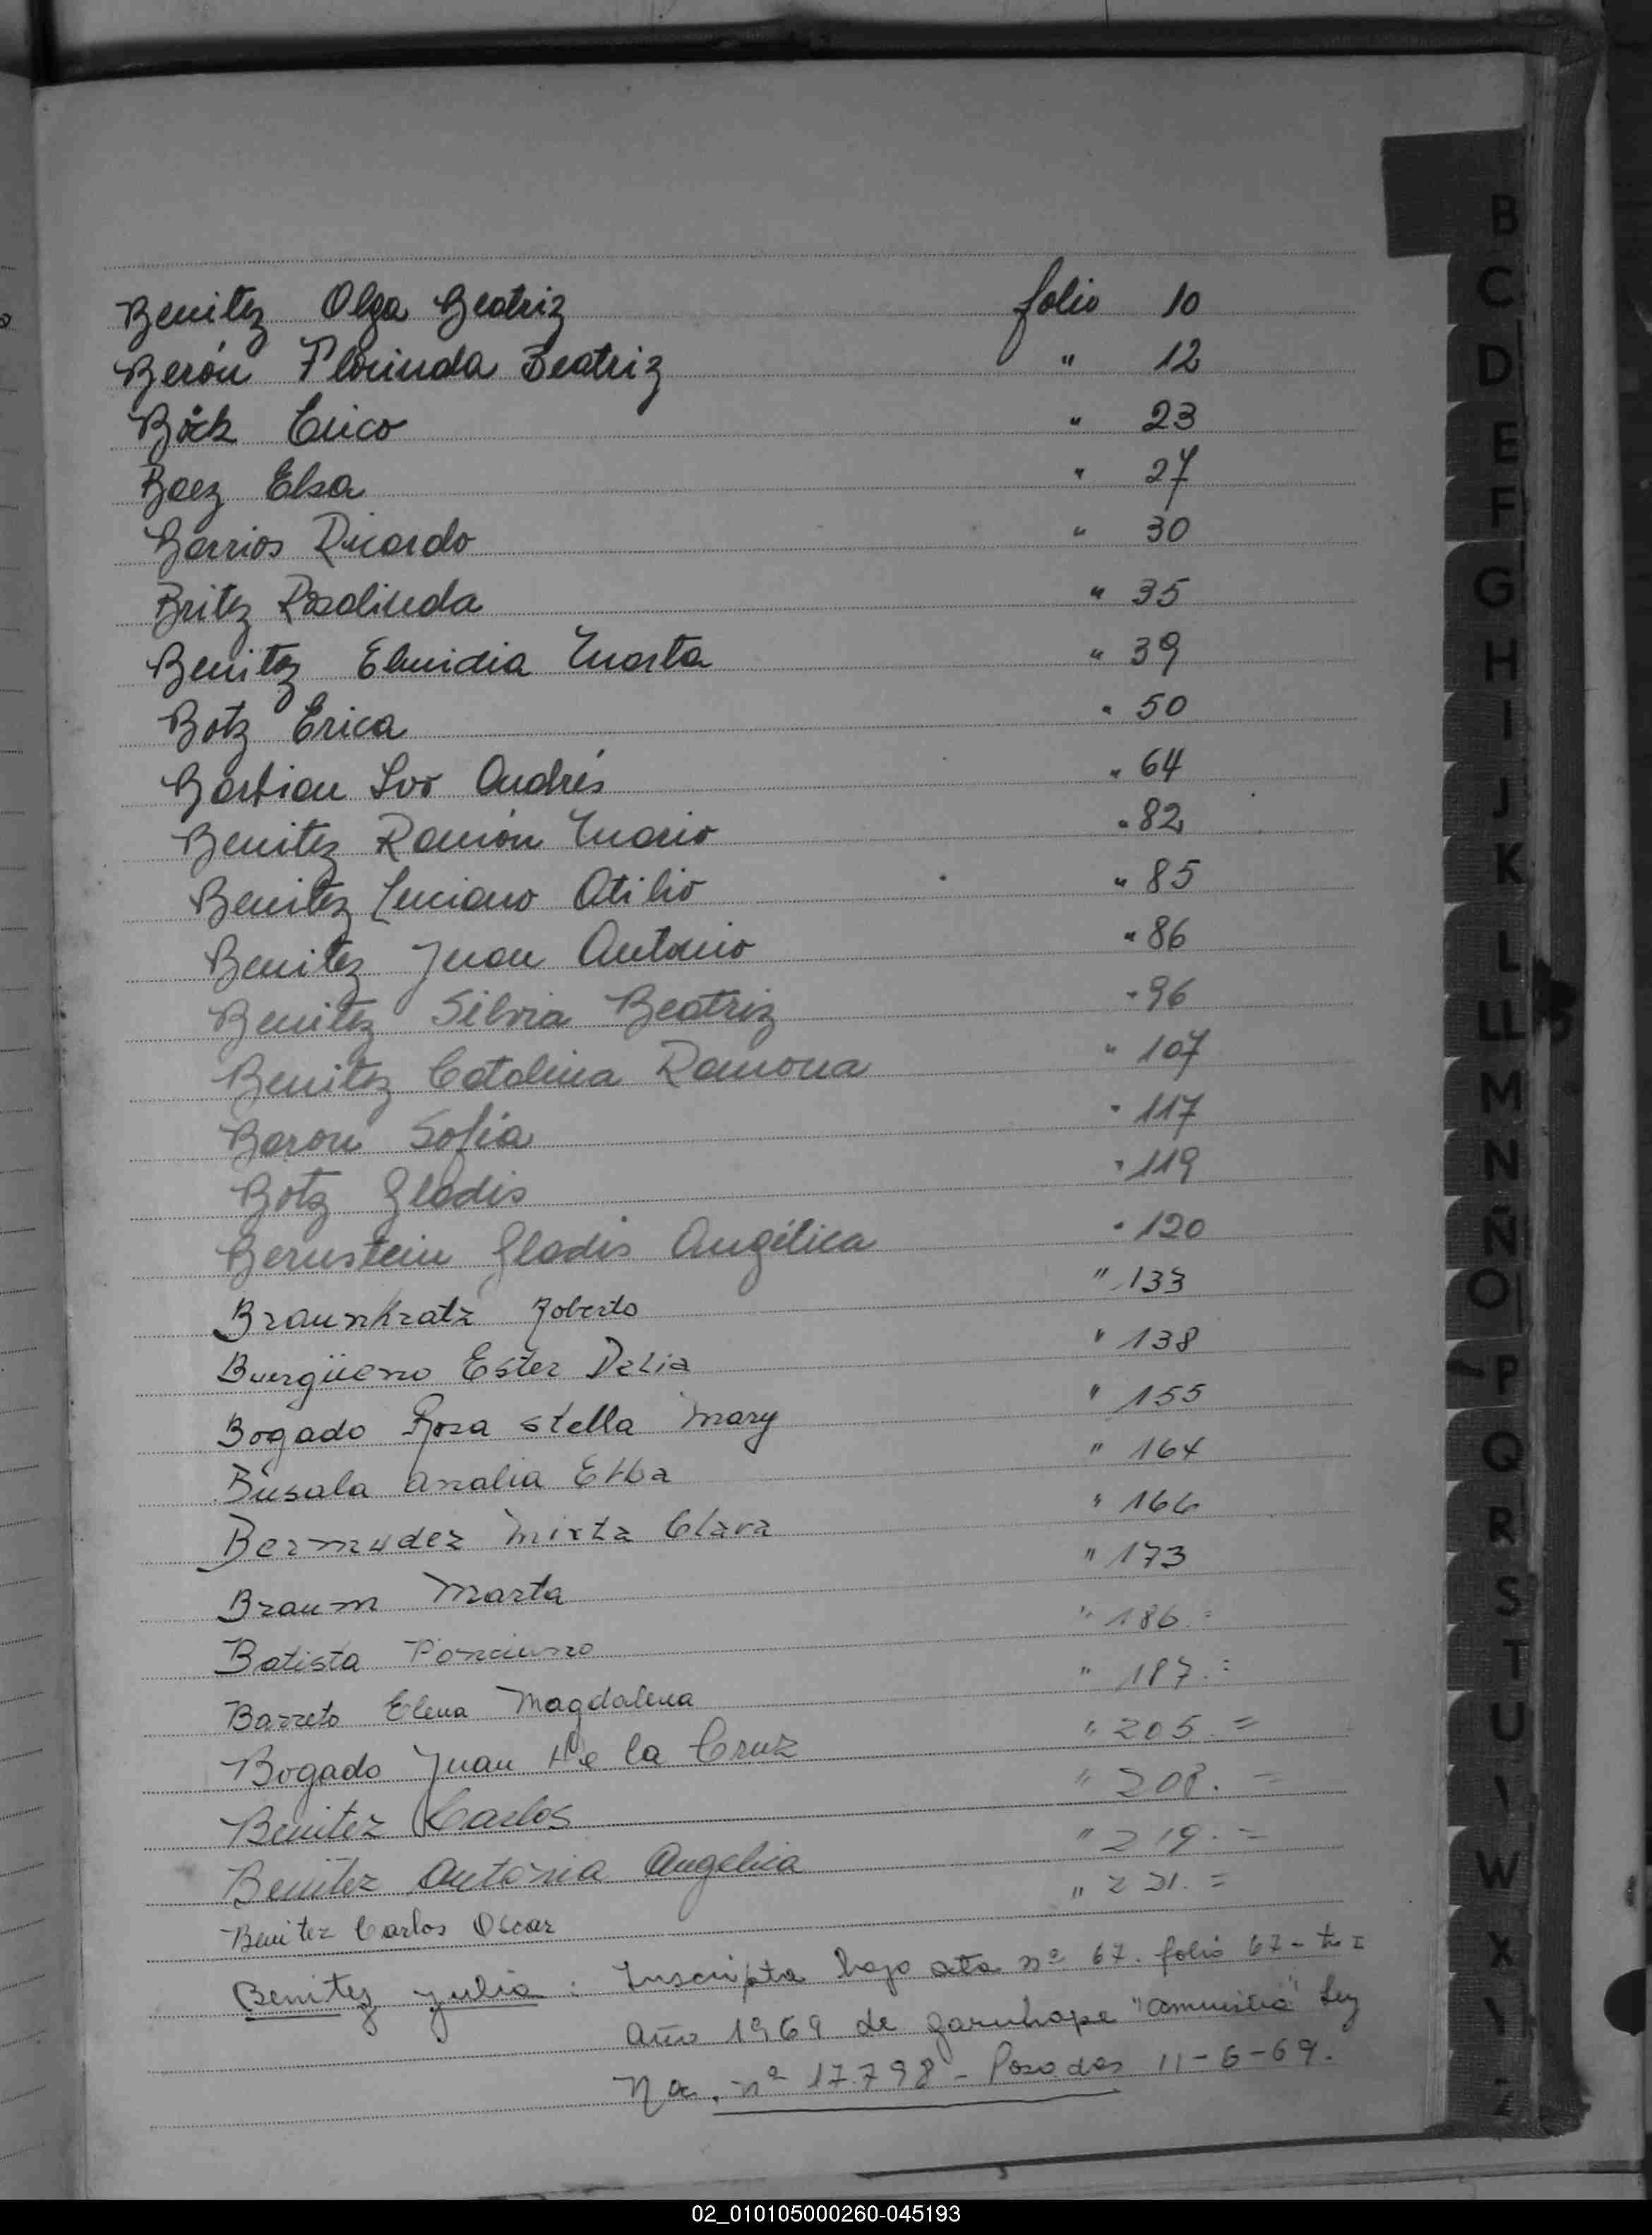 Benitez Olga Beatriz folio 10
Berón Florinda Beatriz " 12
Böck Erico " 23
Baez Elsa " 27
Barrios Ricardo " 30
Britez Rosalinda " 35
Benitez Elmidia Marta " 39
Botz Erica " 50
Bastian Ivo Andrés " 64
Benitez Ramón Mario " 82
Benitez Luciano Atilio " 85
Benitez Juan Antonio " 86
Benitez Silvia Beatriz " 96
Benitez Catalina Ramona " 107
Baron Sofia " 117
Botz Gladis " 119
Bernstein Gladis Angélica " 120
Braunkratz Roberto " 133
Buergüeno Ester Delia " 138
Bogado Rosa Stella Mary " 155
Busala Analia Elba " 164
Bermudez Mirta Clara " 166
Braum Marta " 173
Batista Ponciano " 186.=
Barreto Elena Magdalena " 187.=
Bogado Juan De la Cruz " 205.=
Benitez Carlos " 208.=
Benitez Antonia Angelica " 219.=
Benitez Carlos Oscar " 221.=
Benitez Julia : Inscripta bajo acta nº 67. folio 67 - to I
Año 1969 de Garuhape "Amnistia" Ley
Nac. nº 17.798 - Posadas 11-6-69.
B
C
D
E
F
G
H
I
J
K
L
LL
M
N
Ñ
O
P
Q
R
S
T
U
W
X
Z
02_010105000260-045193